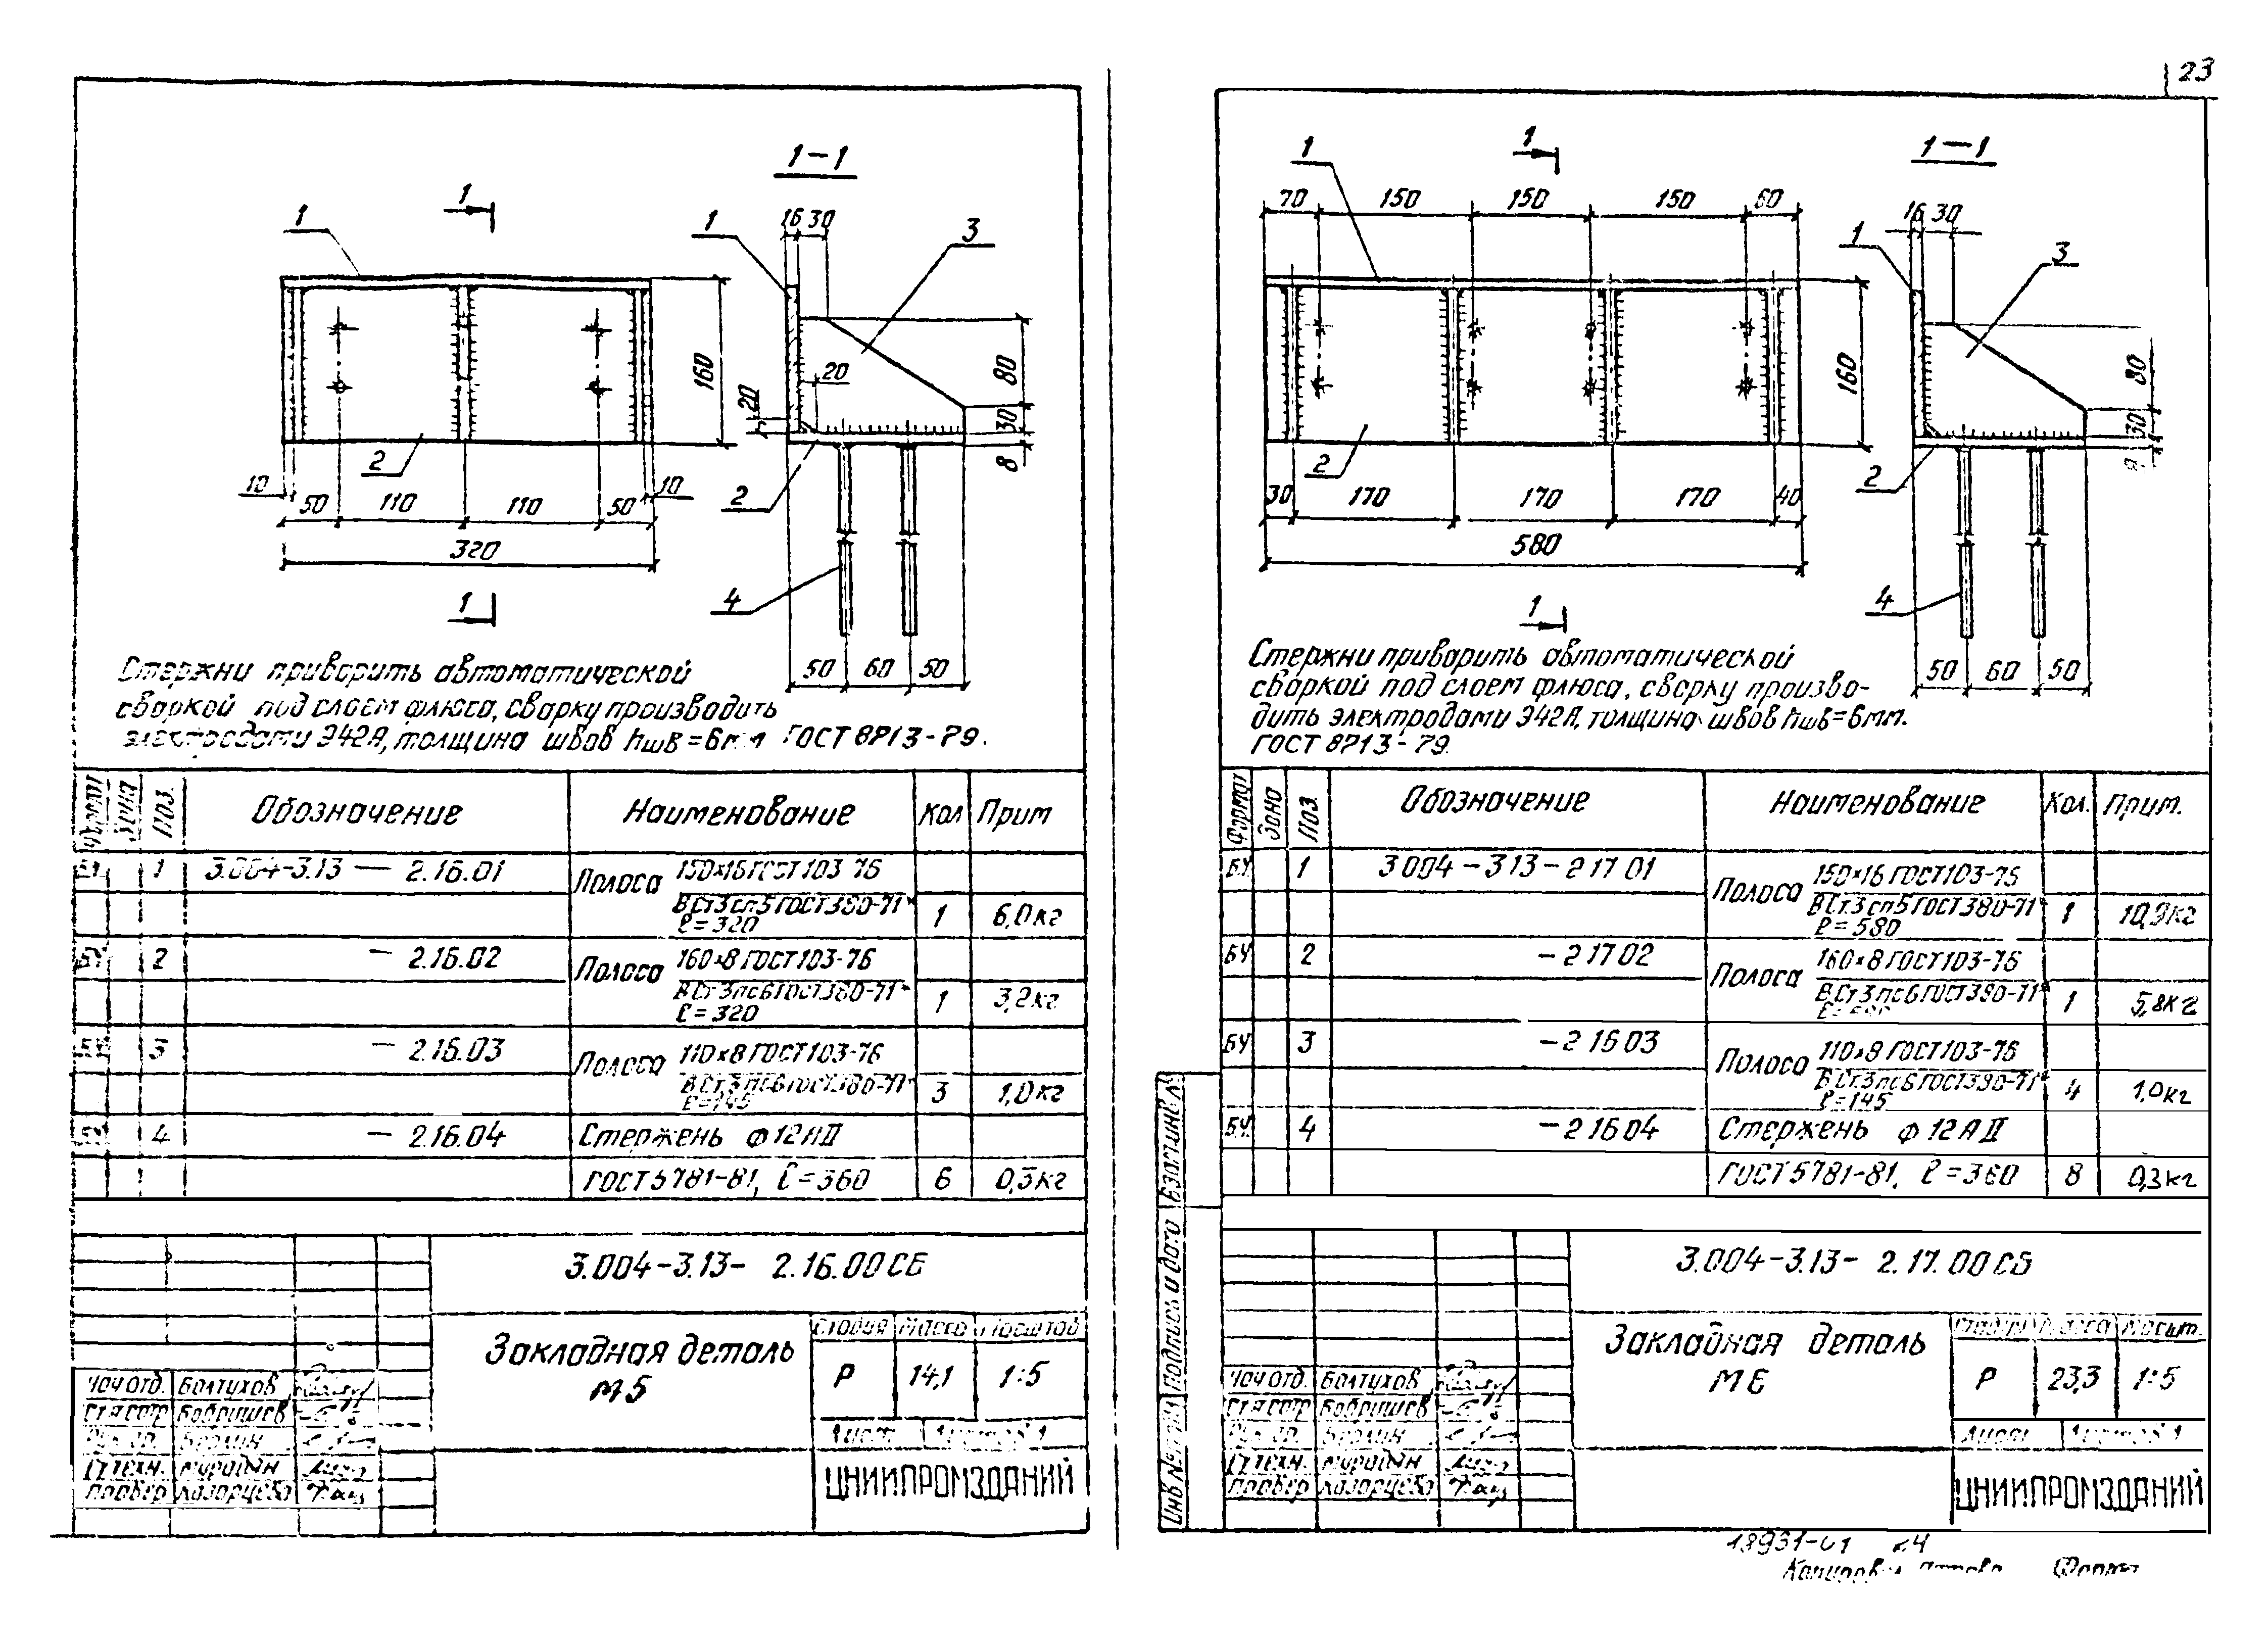 23
1-1
1
1
1
16 30
3
160
20
20
80
30
8
2
10
50
110
110
50
10
320
2
4
1
50
60
50
Стержни приварить автоматической
сваркой под слоем флюса, сварку производить
электродами Э42А, толщина швов hшв=6мм ГОСТ 8713-79.
Формат Зона Поз. Обозначение Наименование Кол Прим
БЧ 1 3.004-3.13 — 2.16.01 Полоса 150×16 ГОСТ 103-76
ВСт3сп5 ГОСТ 380-71* 1 6,0кг
ℓ=320
БЧ 2 — 2.16.02 Полоса 160×8 ГОСТ 103-76
ВСт3пс6 ГОСТ 380-71* 1 3,2кг
ℓ=320
БЧ 3 — 2.16.03 Полоса 110×8 ГОСТ 103-76
ВСт3пс6 ГОСТ 380-71* 3 1,0кг
ℓ=145
БЧ 4 — 2.16.04 Стержень ф12АII
ГОСТ 5781-81, ℓ=360 6 0,3кг
3.004-3.13- 2.16.00СБ
Закладная деталь
М5
Стадия Масса Масштаб
Р 14,1 1:5
Лист Листов 1
Нач отд. Болтухов
Бобришев
Гл техн.
Провер Казарцева
ЦНИИПРОМЗДАНИЙ
1
1
1-1
70 150 150 150 60
16 30
1
3
160
80
30
8
2
2
30 170 170 170 40
580
4
1
50 60 50
Стержни приварить автоматической
сваркой под слоем флюса, сварку произво-
дить электродами Э42А, толщина швов hшв=6мм.
ГОСТ 8713-79.
Формат Зона Поз. Обозначение Наименование Кол. Прим.
БЧ 1 3 004-3 13-2 17 01 Полоса 150×16 ГОСТ 103-76
ВСт3сп5 ГОСТ 380-71* 1 10,9кг
ℓ=580
БЧ 2 -2 17 02 Полоса 160×8 ГОСТ 103-76
ВСт3пс6 ГОСТ 380-71* 1 5,8кг
ℓ=580
БЧ 3 -2 16 03 Полоса 110×8 ГОСТ 103-76
ВСт3пс6 ГОСТ 380-71* 4 1,0кг
ℓ=145
БЧ. 4 -2 16 04 Стержень ф12АII
ГОСТ 5781-81, ℓ=360 8 0,3кг
3.004-3.13- 2.17.00СБ
Закладная деталь
М6
Стадия Масса Масшт.
Р 23,3 1:5
Лист Листов 1
Нач отд. Болтухов
Бобришев
Гл техн.
Провер Казарцева
ЦНИИПРОМЗДАНИЙ
Инв № подл Подпись и дата Взам.инв.№
18931-01
Формат